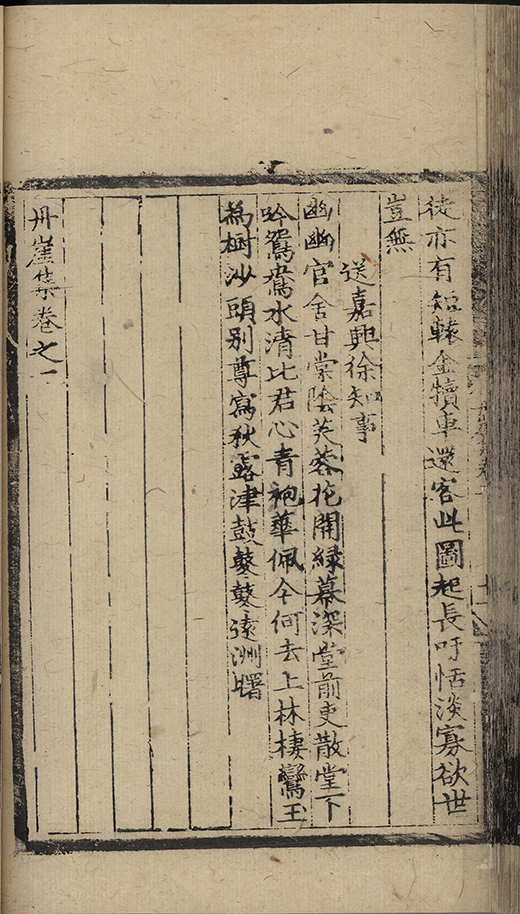 徒亦有短轅金犢車還客此圖起長吁恬淡寡欲世
豈無
送嘉興徐知事
幽幽官舍甘棠陰芙蓉花開綠幕深堂前吏散堂下
吟鴛鴦水清比君心青袍華佩今何去上林棲鸞玉
為樹沙頭別尊寫秋露津鼓鼕鼕遠洲曙
丹崖集卷之一